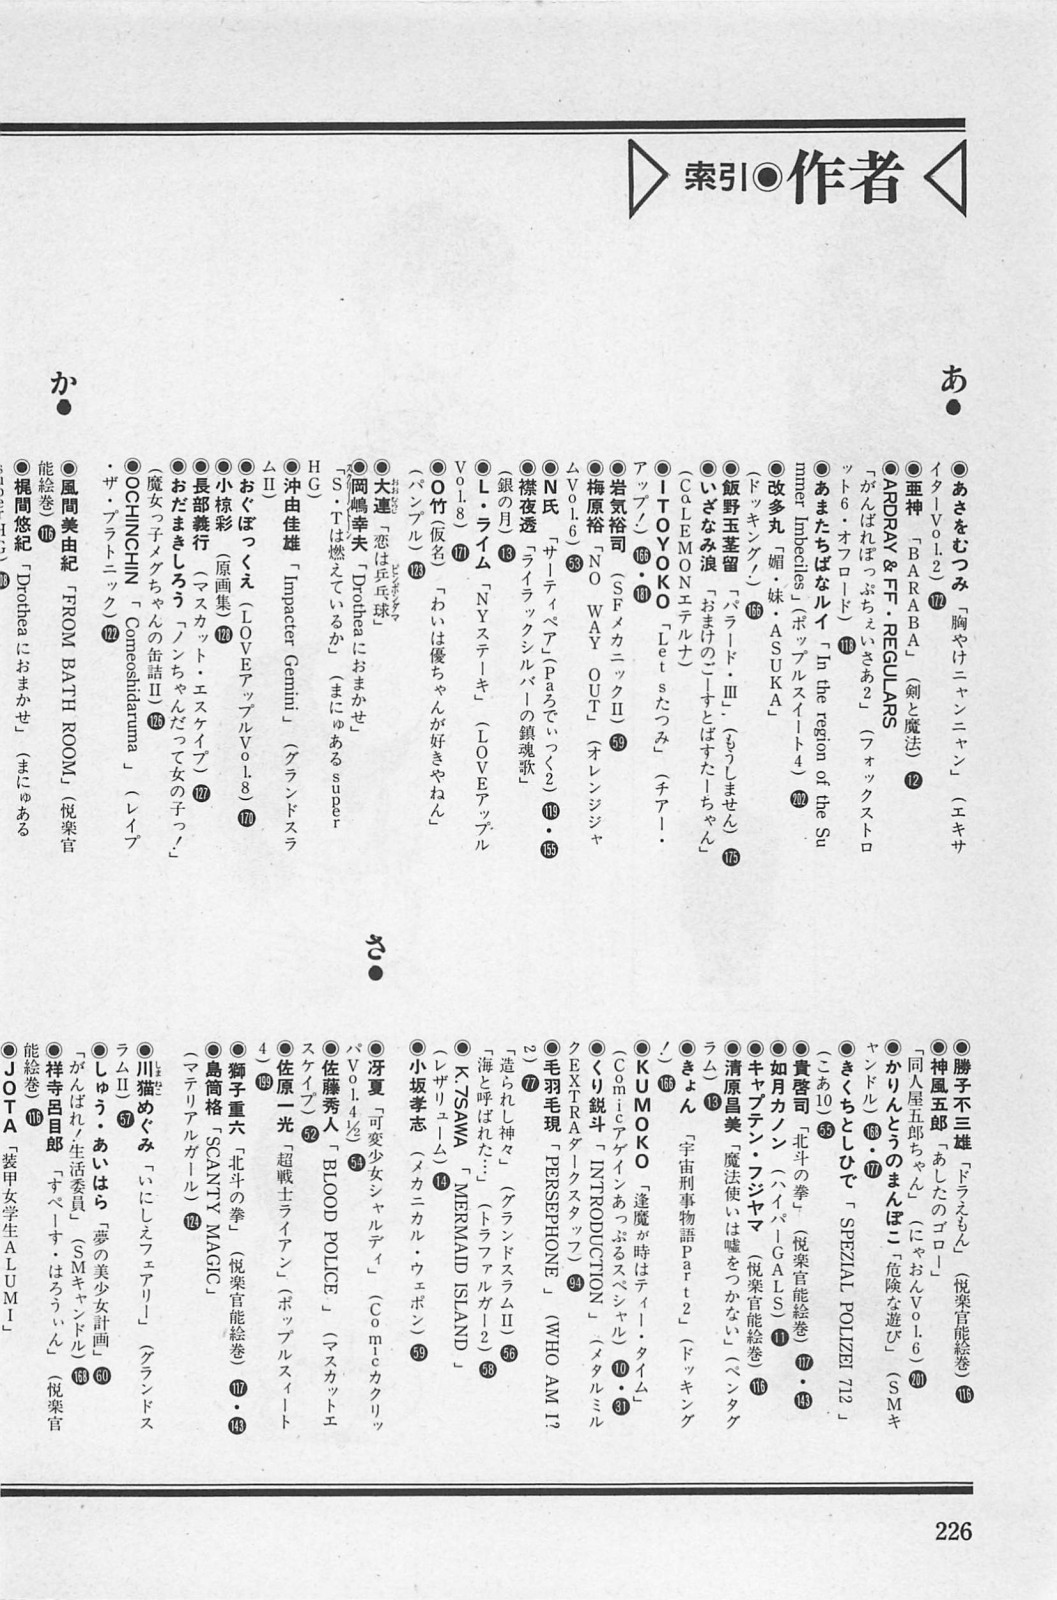 索引◉作者
あ●
◉あさをむつみ「胸やけニャンニャン」（エキサ
イターVol.2）172
◉亜神「BARABA」（剣と魔法）12
◉ARDRAY & FF・REGULARS
「がんばれぽっぷちぇいさあ2」（フォックストロ
ット6・オフロード）118
◉あまたちばなルイ「In the region of the Su
mmer Imbeciles」（ポップルスイート4）202
◉改多丸「媚・妹・ASUKA」
（ドッキング！）166
◉飯野玉茎留「パラード・Ⅲ」（もうしません）175
◉いざなみ浪「おまけのごーすとばすたーちゃん」
（CαLEMONエテルナ）
◉ITOYOKO「Let'sたつみ」（チアー・
アップ！）166・181
◉岩気裕司（SFメカニックⅡ）59
◉梅原裕「NO WAY OUT」（オレンジジャ
ムVol.6）53
◉N氏「サーティペア」（Paろでぃっく2）119・155
◉襟夜透「ライラックシルバーの鎮魂歌」
（銀の月）13
◉L・ライム「NYステーキ」（LOVEアップル
Vol.8）171
◉O竹（仮名）「わいは優ちゃんが好きやねん」
（パンプル）123
◉大連「恋は乒乓球」
◉岡嶋幸夫「Drotheaにおまかせ」
「S・Tは燃えているか」（まにゅあるsuper
HG）
◉沖由佳雄「Impacter Gemini」（グランドスラ
ムⅡ）
◉おぐぼっくえ（LOVEアップルVol.8）170
◉小椋彩（原画集）128
◉長部義行（マスカット・エスケイプ）127
◉おだまきしろう「ノンちゃんだって女の子っ！」
（魔女っ子メグちゃんの缶詰Ⅱ）126
◉OCHINCHIN「Comeoshidaruma」（レイプ
・ザ・プラトニック）122
か●
◉風間美由紀「FROM BATH ROOM」（悦楽官
能絵巻）116
◉梶間悠紀「Drotheaにおまかせ」（まにゅある
◉勝子不三雄「ドラえもん」（悦楽官能絵巻）116
◉神風五郎「あしたのゴロー」
「同人屋五郎ちゃん」（にゃおんVol.6）201
◉かりんとうのまんぽこ「危険な遊び」（SMキ
ャンドル）168・177
◉きくちとしひで「SPEZIAL POLIZEI 712」
（こあ10）55
◉貴啓司「北斗の拳」（悦楽官能絵巻）117・143
◉如月カノン（ハイパーGALS）11
◉キャプテン・フジヤマ（悦楽官能絵巻）116
◉清原昌美「魔法使いは嘘をつかない」（ペンタグ
ラム）13
◉きょん「宇宙刑事物語Part2」（ドッキング
！）166
◉KUMOKO「逢魔が時はティー・タイム」
（Comicアゲインあっぷるスペシャル）10・31
◉くり鋭斗「INTRODUCTION」（メタルミル
クEXTRAダークスタッフ）94
◉毛羽毛現「PERSEPHONE」（WHO AM I?
2）77
「造られし神々」（グランドスラムⅡ）56
「海と呼ばれた…」（トラファルガー2）58
◉K.7SAWA「MERMAID ISLAND」
（レザリューム）14
◉小坂孝志（メカニカル・ウェポン）59
さ●
◉冴夏「可変少女シャルディ」（Comicカクリッ
パVol.4½）54
◉佐藤秀人「BLOOD POLICE」（マスカットエ
スケイプ）52
◉佐原一光「超戦士ライアン」（ポップルスィート
4）199
◉獅子重六「北斗の拳」（悦楽官能絵巻）117・143
◉島筒格「SCANTY MAGIC」
（マテリアルガール）124
◉川猫めぐみ「いにしえフェアリー」（グランドス
ラムⅡ）57
◉しゅう・あいはら「夢の美少女計画」60
「がんばれ！生活委員」（SMキャンドル）168
◉祥寺呂目郎「すぺーす・はろうぃん」（悦楽官
能絵巻）116
◉JOTA「装甲女学生ALUMI」
226